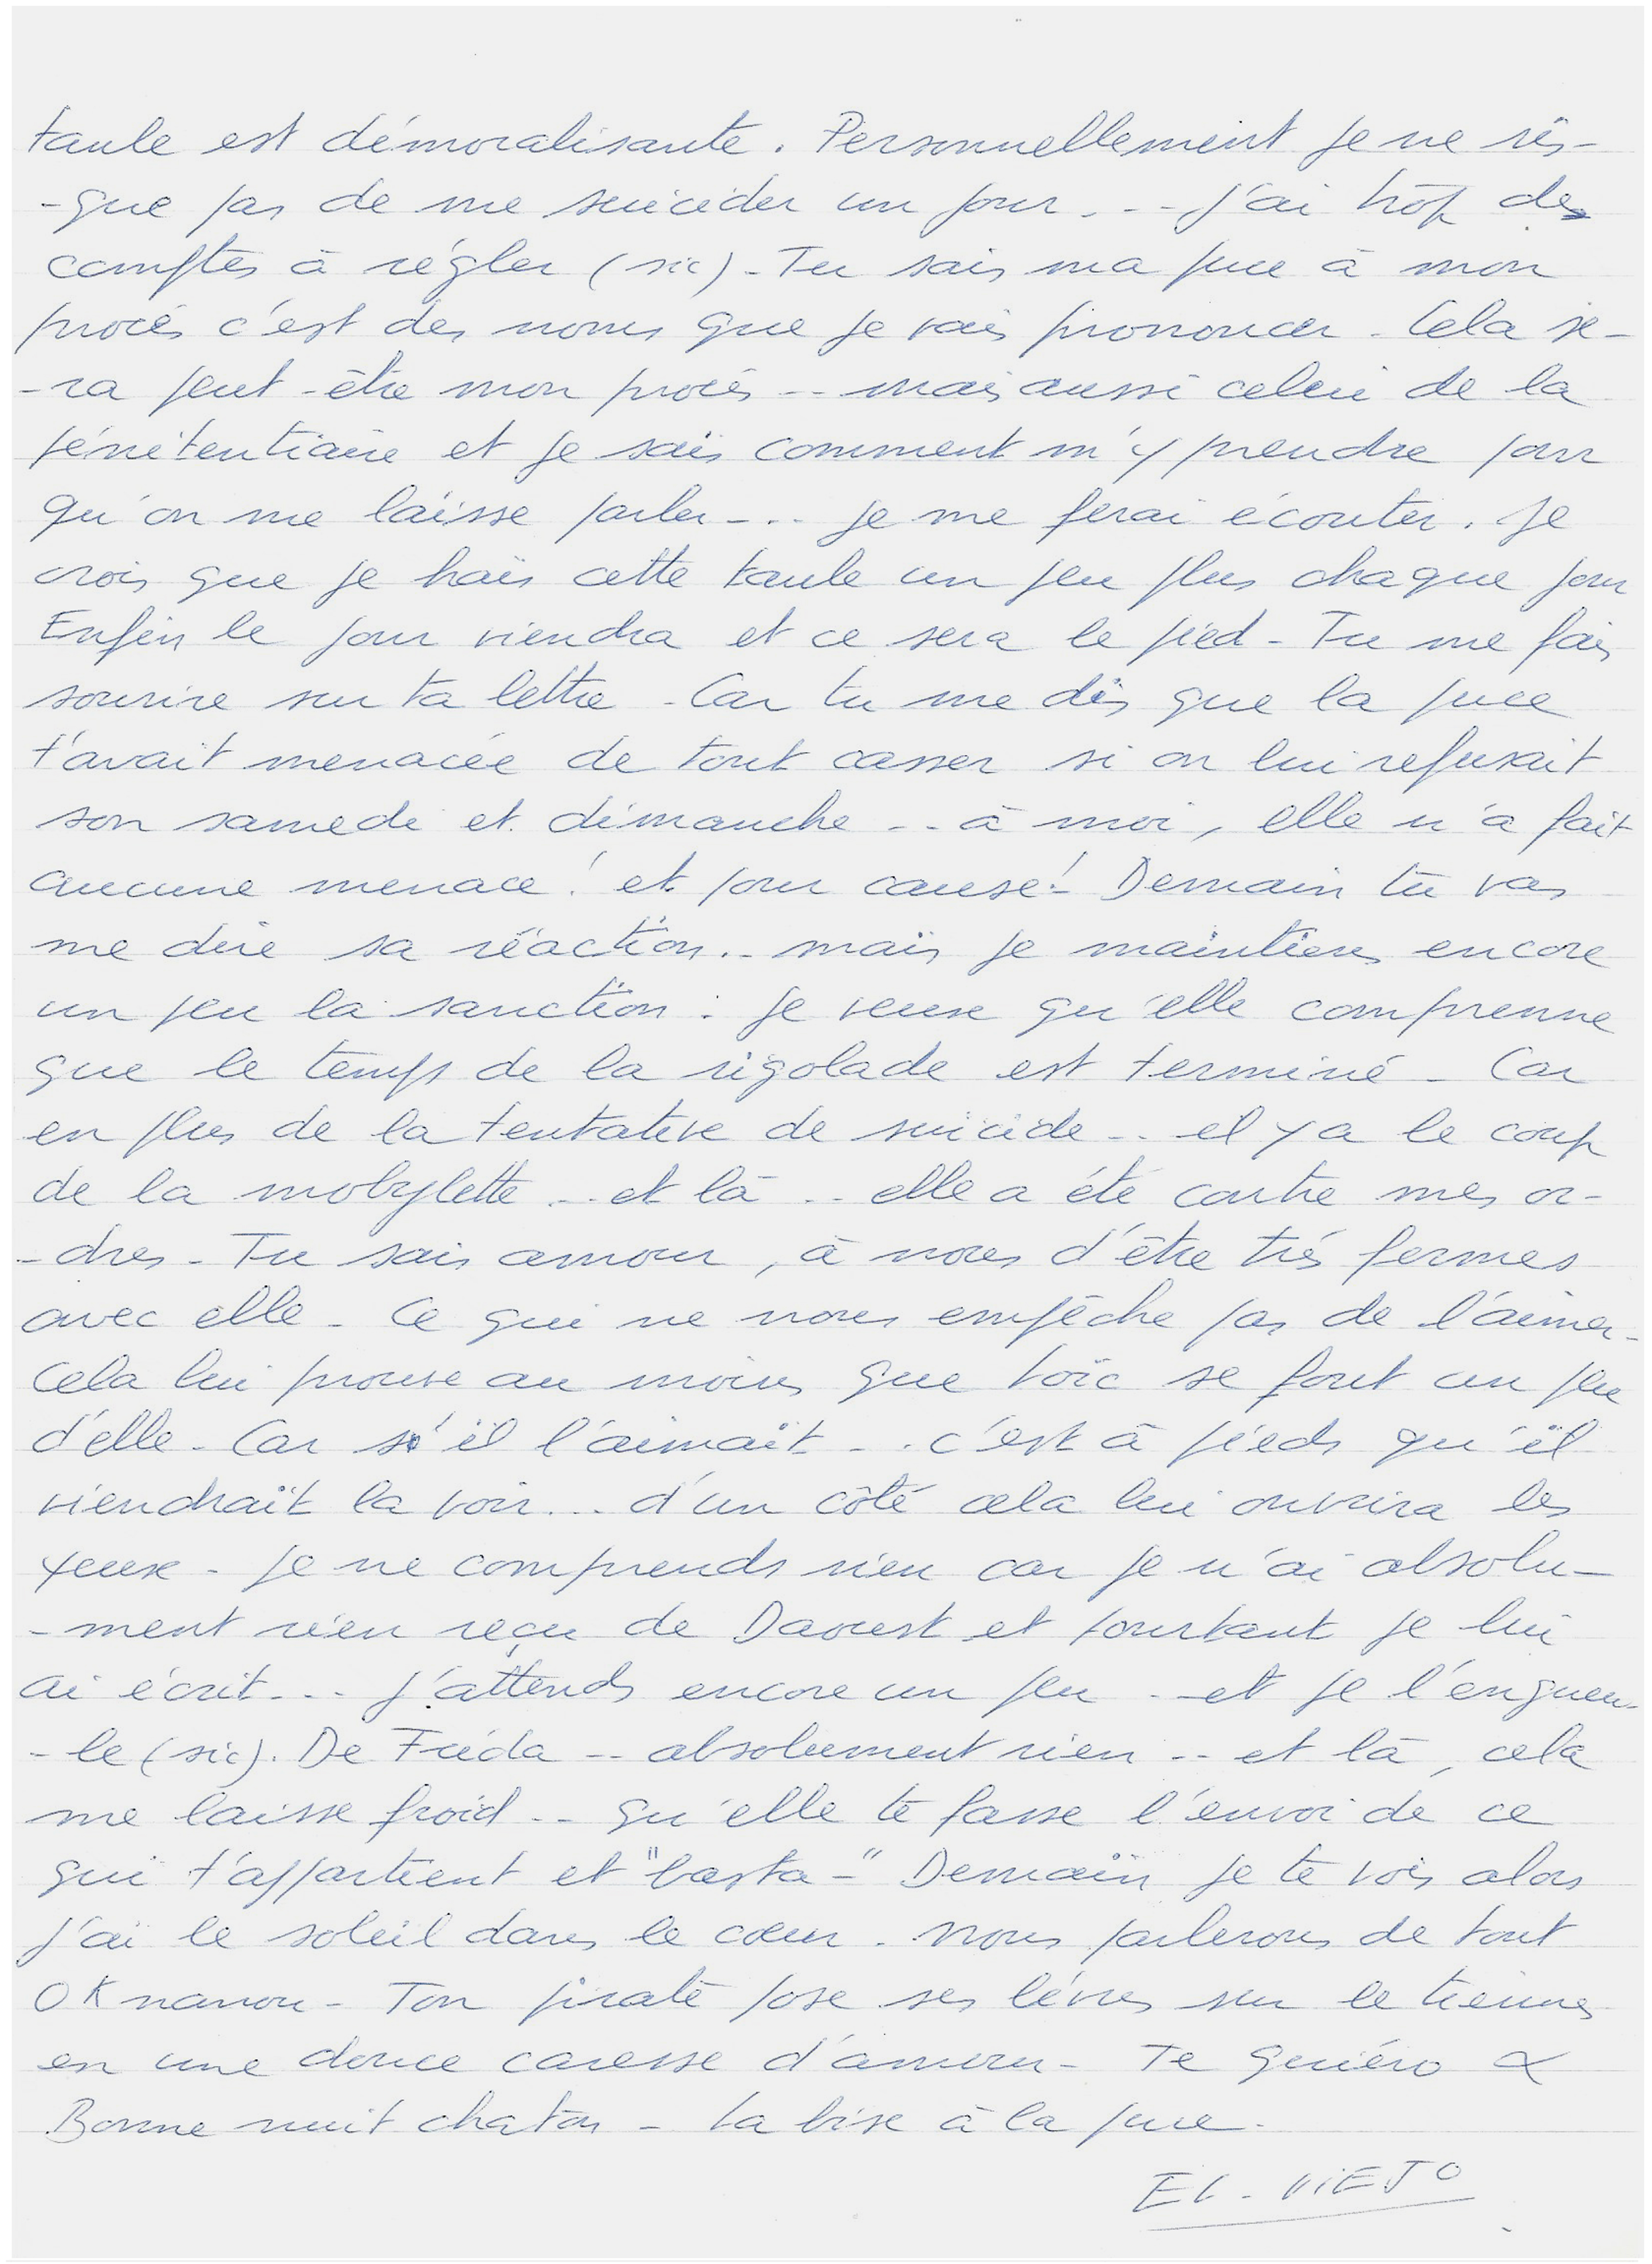 taule est démoralisante. Personnellement je ne ris-
-que pas de me suicider un jour... j'ai trop des
comptes à régler (sic) - Tu sais ma puce à mon
procés c'est des noms que je vais prononcer - Cela se-
-ra peut-être mon procès -- mais aussi celui de la
pénitentiaire et je sais comment m'y prendre pour
qu'on me laisse parler... je me ferai écouter. Je
crois que je hais cette taule un peu plus chaque jour
Enfin le jour viendra et ce sera le pied - Tu me fais
sourire sur ta lettre - Car tu me dis que la puce
t'avait menacée de tout casser si on lui refusait
son samedi et dimanche .. à moi, elle n'a fait
aucune menace! et pour cause! Demain tu vas
me dire sa réaction.. mais je maintiens encore
un peu la sanction : je veux qu'elle comprenne
que le temps de la rigolade est terminé - Car
en plus de la tentative de suicide .. il y a le coup
de la mobylette .. et là .. elle a été contre mes or-
-dres - Tu sais amour, à nous d'être très fermes
avec elle - Ce qui ne nous empêche pas de l'aimer -
Cela lui prouve au moins que Loïc se fout un peu
d'elle - Car s'il l'aimait ... c'est à pieds qu'il
viendrait la voir... d'un côté cela lui ouvrira les
yeux - Je ne comprends rien car je n'ai absolu-
-ment rien reçu de Davoust et pourtant je lui
ai écrit... J'attends encore un peu .. et je l'engueu-
-le (sic). De Frida -- absolument rien .. et là, cela
me laisse froid .. qu'elle te fasse l'envoi de ce
qui t'appartient et "basta -" Demain je te vois alors
j'ai le soleil dans le cœur. Nous parlerons de tout
OK nanou - Ton pirate pose ses lèvres sur le tiennes
en une douce caresse d'amour - Te quiéro α
Bonne nuit chaton - La bise à la puce -
EL - VIEJO